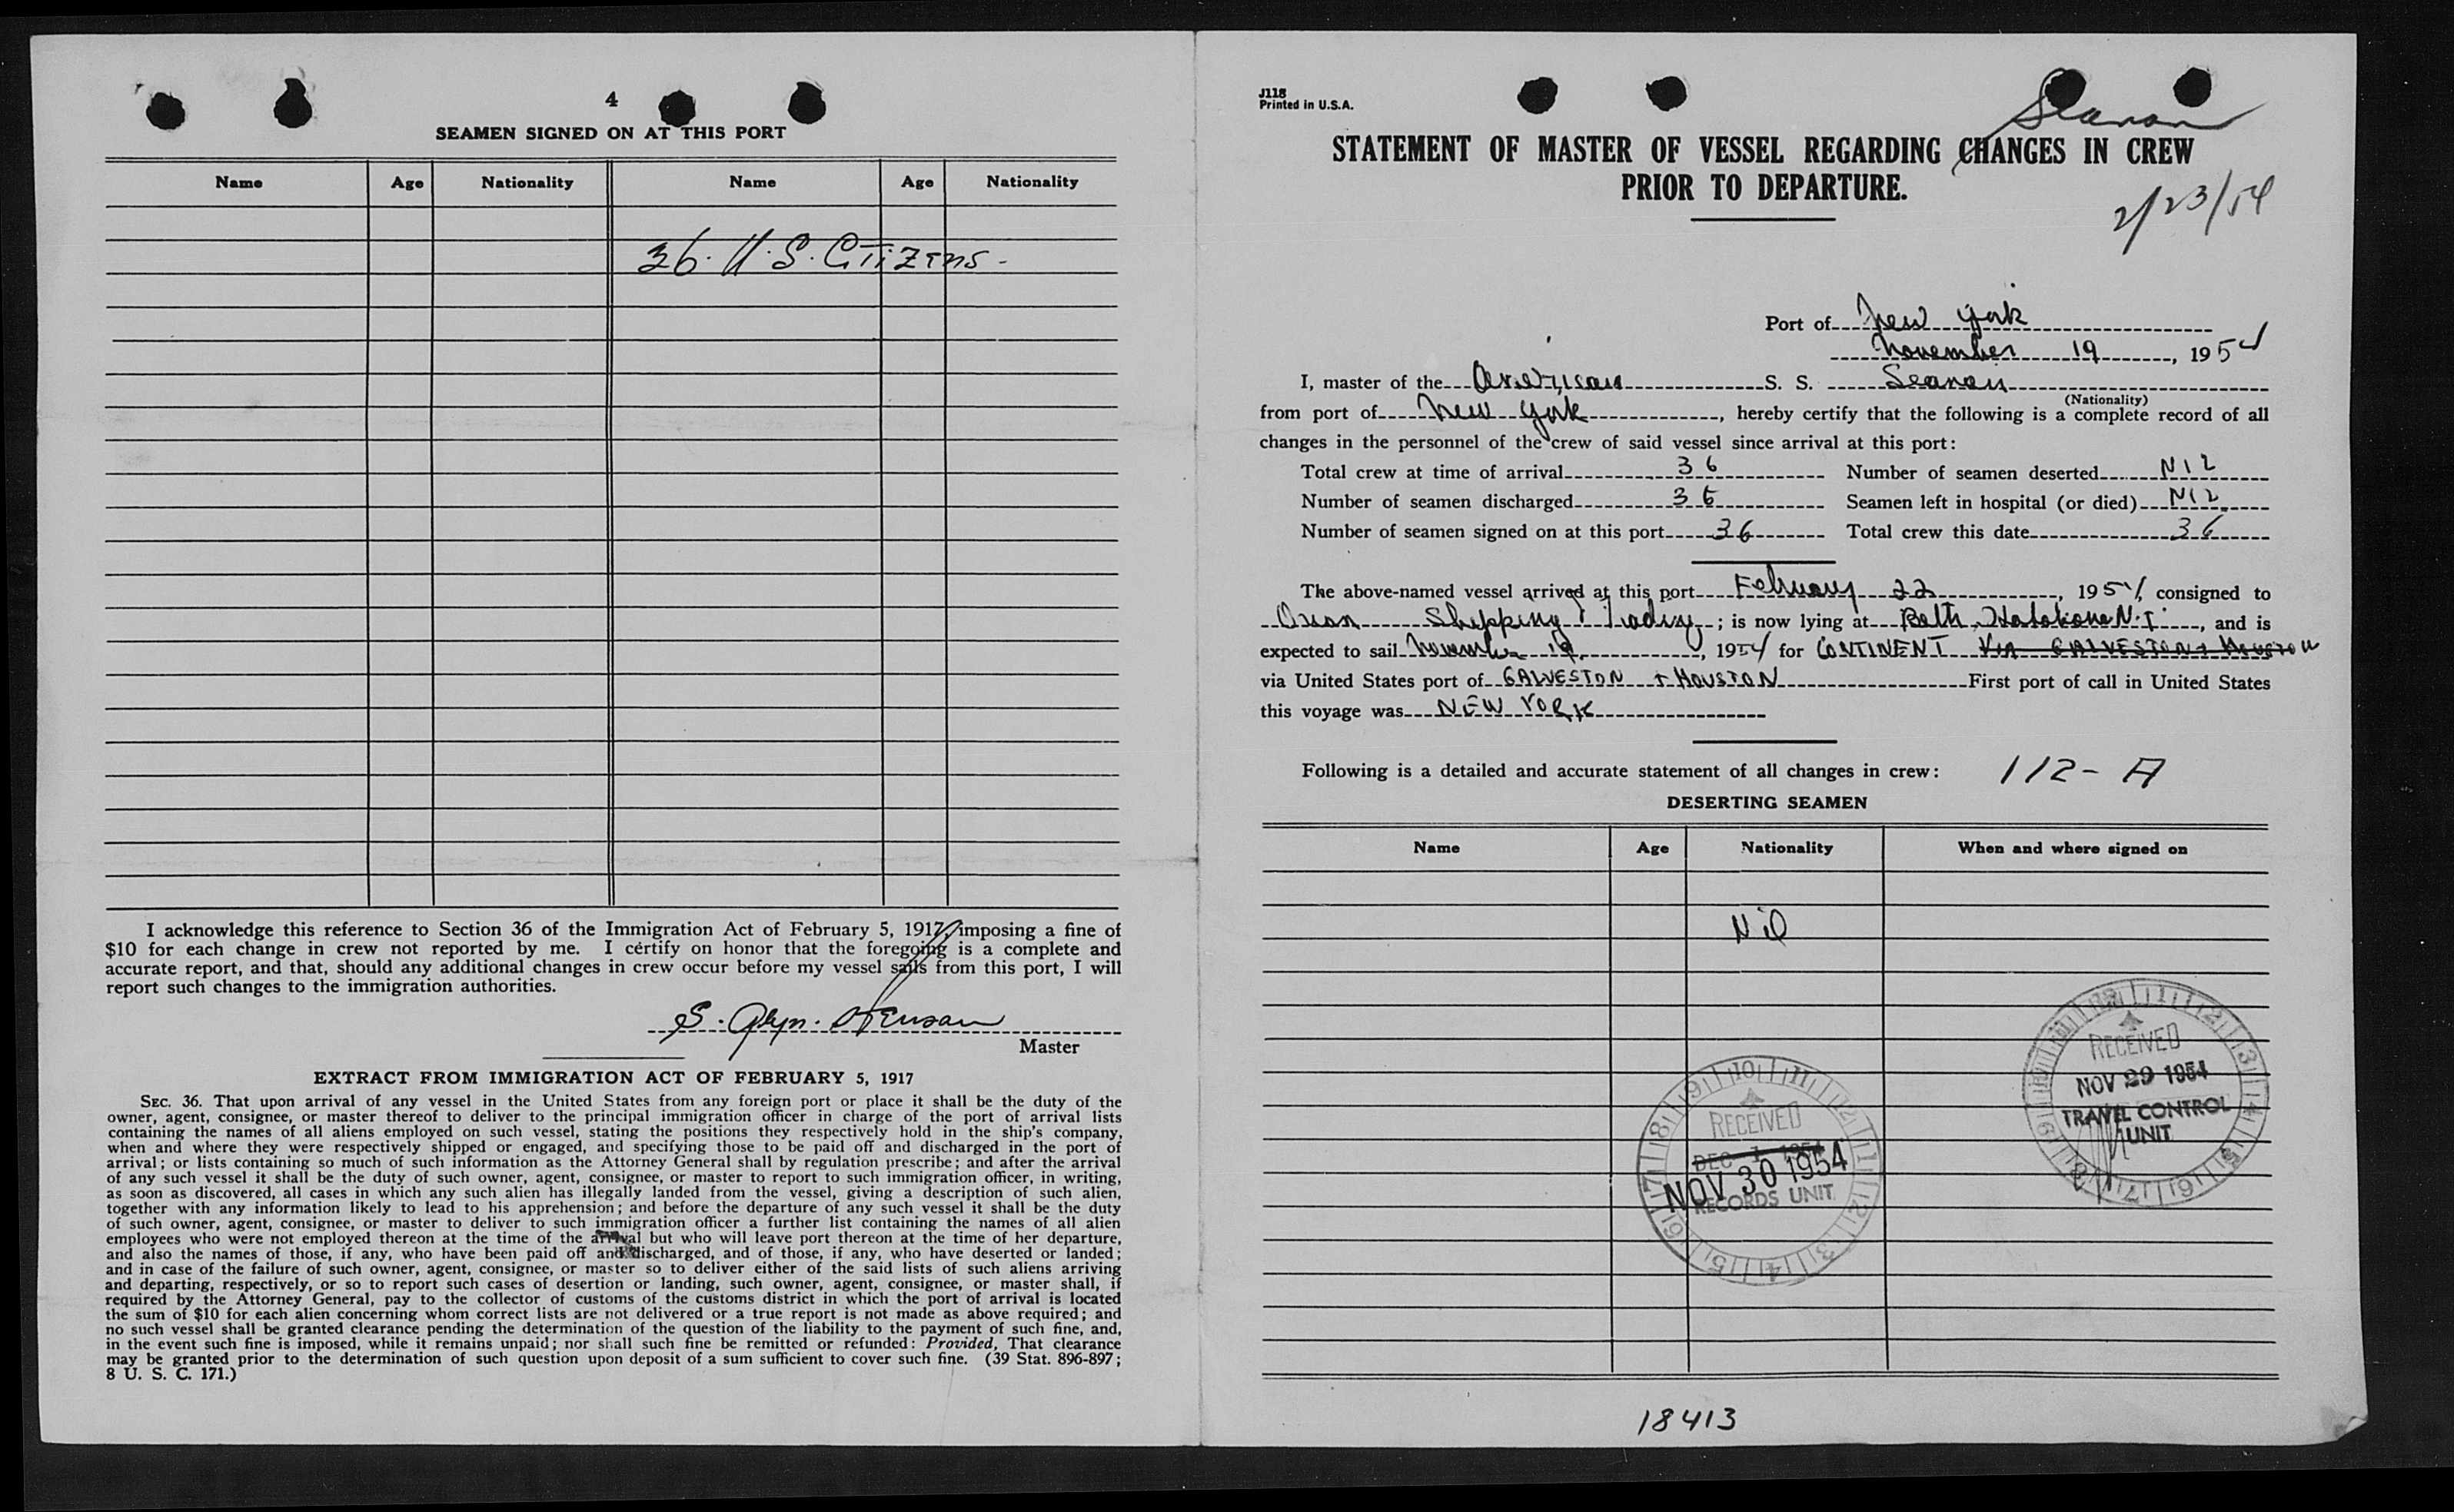 4
SEAMEN SIGNED ON AT THIS PORT
Name Age Nationality Name Age Nationality
36. U.S. Citizens -
I acknowledge this reference to Section 36 of the Immigration Act of February 5, 1917, imposing a fine of
$10 for each change in crew not reported by me. I certify on honor that the foregoing is a complete and
accurate report, and that, should any additional changes in crew occur before my vessel sails from this port, I will
report such changes to the immigration authorities.
S. Glyn.
Master
EXTRACT FROM IMMIGRATION ACT OF FEBRUARY 5, 1917
SEC. 36. That upon arrival of any vessel in the United States from any foreign port or place it shall be the duty of the
owner, agent, consignee, or master thereof to deliver to the principal immigration officer in charge of the port of arrival lists
containing the names of all aliens employed on such vessel, stating the positions they respectively hold in the ship's company,
when and where they were respectively shipped or engaged, and specifying those to be paid off and discharged in the port of
arrival; or lists containing so much of such information as the Attorney General shall by regulation prescribe; and after the arrival
of any such vessel it shall be the duty of such owner, agent, consignee, or master to report to such immigration officer, in writing,
as soon as discovered, all cases in which any such alien has illegally landed from the vessel, giving a description of such alien,
together with any information likely to lead to his apprehension; and before the departure of any such vessel it shall be the duty
of such owner, agent, consignee, or master to deliver to such immigration officer a further list containing the names of all alien
employees who were not employed thereon at the time of the arrival but who will leave port thereon at the time of her departure,
and also the names of those, if any, who have been paid off and discharged, and of those, if any, who have deserted or landed;
and in case of the failure of such owner, agent, consignee, or master so to deliver either of the said lists of such aliens arriving
and departing, respectively, or so to report such cases of desertion or landing, such owner, agent, consignee, or master shall, if
required by the Attorney General, pay to the collector of customs of the customs district in which the port of arrival is located
the sum of $10 for each alien concerning whom correct lists are not delivered or a true report is not made as above required; and
no such vessel shall be granted clearance pending the determination of the question of the liability to the payment of such fine, and,
in the event such fine is imposed, while it remains unpaid; nor shall such fine be remitted or refunded: Provided, That clearance
may be granted prior to the determination of such question upon deposit of a sum sufficient to cover such fine. (39 Stat. 896-897;
8 U. S. C. 171.)
J118
Printed in U.S.A.
Seanan
STATEMENT OF MASTER OF VESSEL REGARDING CHANGES IN CREW
PRIOR TO DEPARTURE.
2/23/54
Port of New York
November 19, 1954
I, master of the American S. S. Seanan
(Nationality)
from port of New York, hereby certify that the following is a complete record of all
changes in the personnel of the crew of said vessel since arrival at this port:
Total crew at time of arrival 36 Number of seamen deserted NIL
Number of seamen discharged 36 Seamen left in hospital (or died) NIL
Number of seamen signed on at this port 36 Total crew this date 36
The above-named vessel arrived at this port February 22, 1954, consigned to
Ocean Shipping & Trading; is now lying at Beth. Hoboken N.J., and is
expected to sail November 19, 1954 for CONTINENT VIA GALVESTON + HOUSTON
via United States port of GALVESTON + HOUSTON First port of call in United States
this voyage was NEW YORK
Following is a detailed and accurate statement of all changes in crew: 112-A
DESERTING SEAMEN
Name Age Nationality When and where signed on
Nil
RECEIVED
NOV 29 1954
TRAVEL CONTROL
UNIT
RECEIVED
DEC 1 1954
NOV 30 1954
RECORDS UNIT
18413